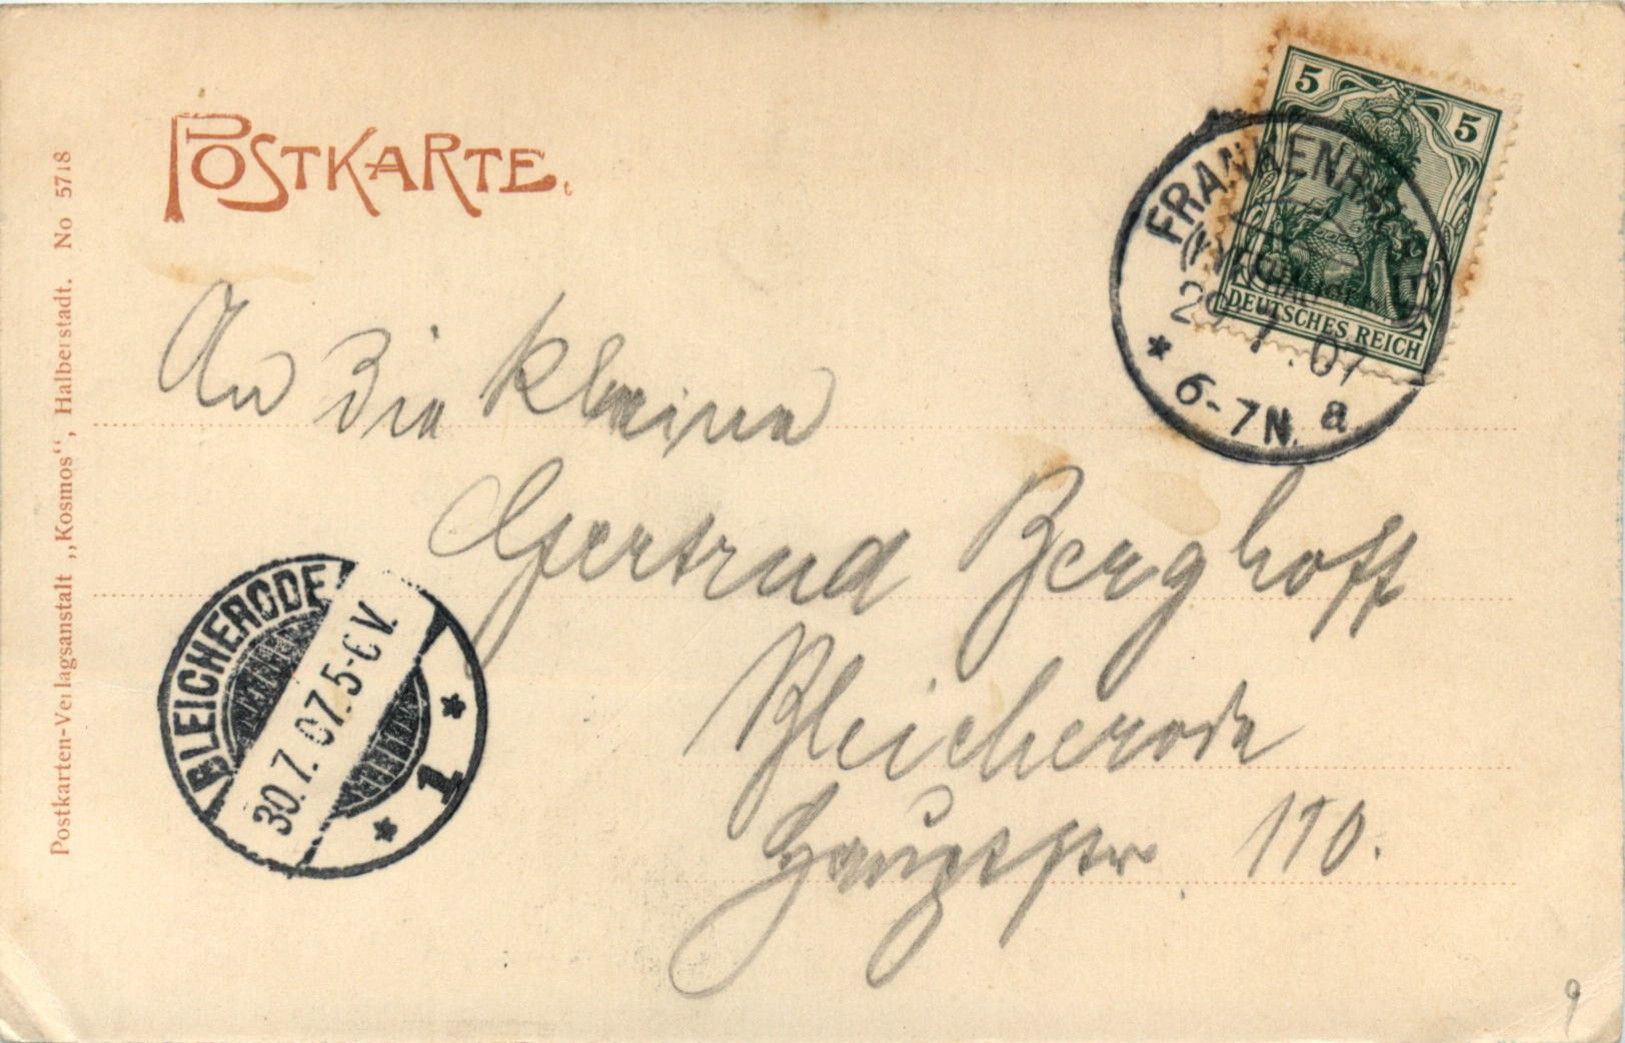 POSTKARTE.
5
5
DEUTSCHES REICH
FRANKENHAUSEN
(KYFFHÄUSER)
29.7.07
* 6-7N. a
An die kleine
Gertrud Berghoff
Bleicherode
Hauptstr 110.
BLEICHERODE
30.7.07.5-6V.
* 1 *
Postkarten-Verlagsanstalt „Kosmos“, Halberstadt. No 5718
9